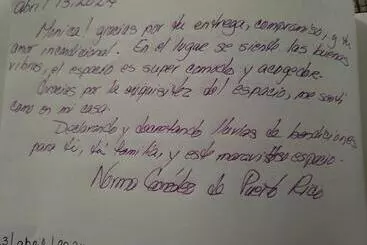 abril 13, 2024
Monica! gracias por tu entrega, compromiso, y tu
amor incondicional. En el lugar se siente las buenas
vibras, el espacio es super comodo y acogedor.
Gracias por la exquisitez del espacio, me sentí
como en mi casa.
Declarando y decretando lluvias de bendiciones
para ti, tu familia, y este maravilloso espacio.
Norma González de Puerto Rico